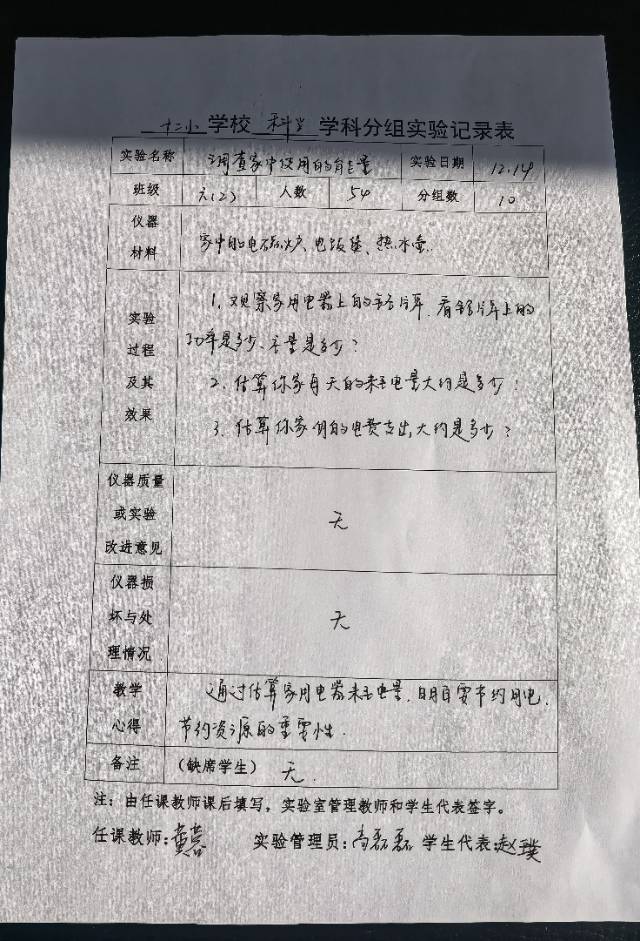 十二小学校 科学 学科分组实验记录表
实验名称 调查家中使用的能量 实验日期 12.14
班级 六(2) 人数 54 分组数 10
仪器材料 家中的电磁炉、电饭煲、热水壶.
实验过程及其效果
1、观察家用电器上的铭牌.看铭牌上的
功率是多少、 量是多少?
2、估算你家每天的耗电量大约是多少?
3、估算你家 的电费支出大约是多少?
仪器质量或实验改进意见 无
仪器损坏与处理情况 无
教学心得 通过估算家用电器耗电量.明白要节约用电.
节约资源的重要性.
备注 (缺席学生) 无.
注:由任课教师课后填写,实验室管理教师和学生代表签字。
任课教师:黄蓉 实验管理员:高磊磊 学生代表:赵璞